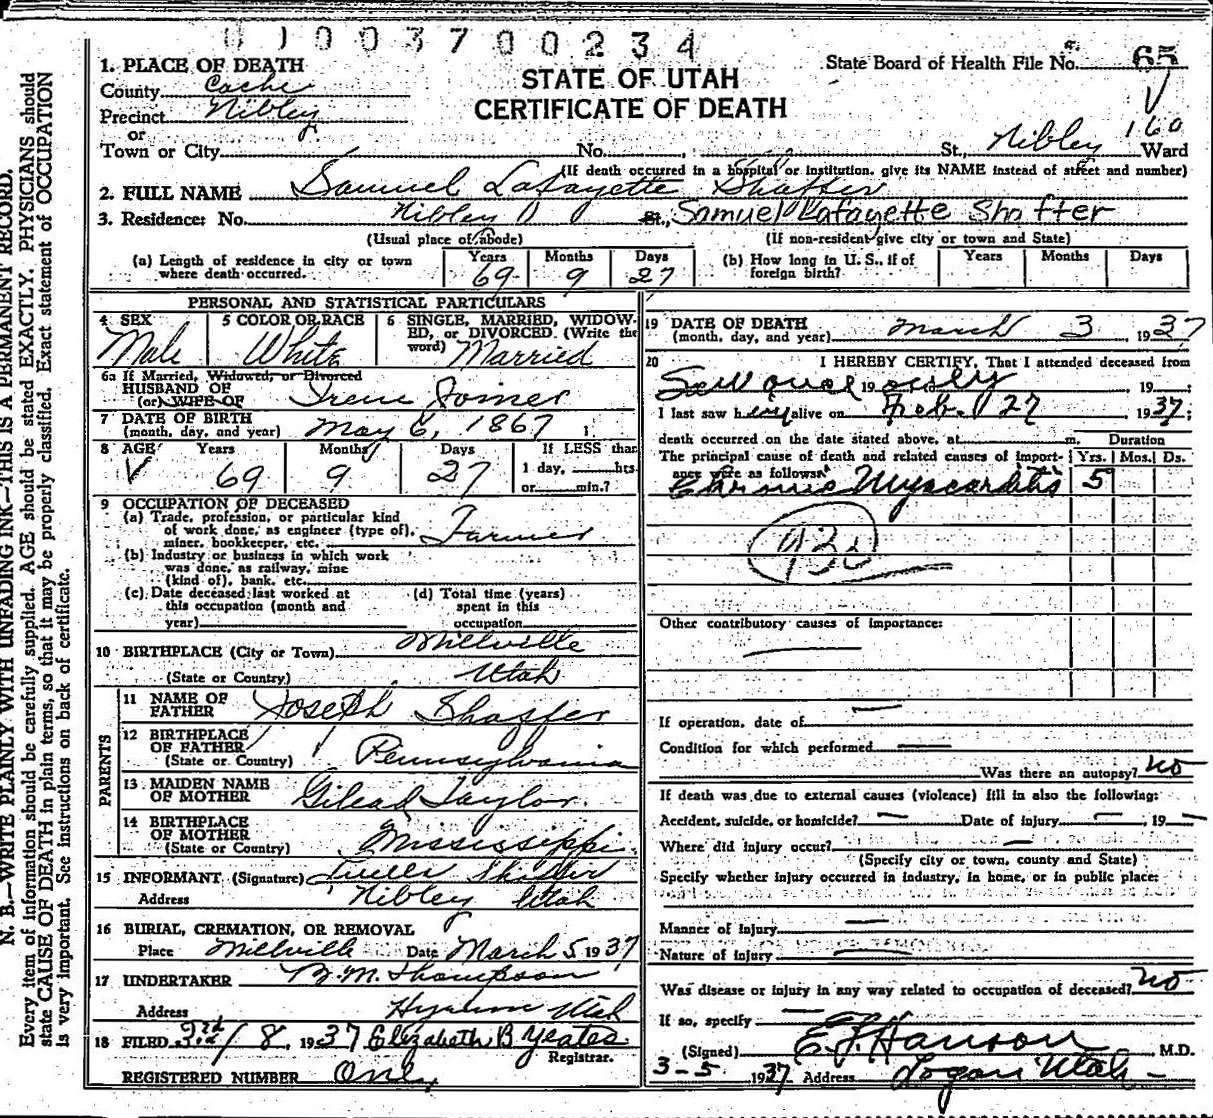 01003700234
1. PLACE OF DEATH
STATE OF UTAH
CERTIFICATE OF DEATH
State Board of Health File No. 65
County Cache
Precinct Nibley
or
Town or City No. St., Nibley 160 Ward
(If death occurred in a hospital or institution, give its NAME instead of street and number)
2. FULL NAME Samuel Lafayette Shaffer
3. Residence: No. Nibley St., Samuel Lafayette Shaffer
(Usual place of abode) (If non-resident give city or town and State)
(a) Length of residence in city or town where death occurred. Years 69 Months 9 Days 27
(b) How long in U. S., if of foreign birth? Years Months Days
PERSONAL AND STATISTICAL PARTICULARS
4 SEX Male
5 COLOR OR RACE White
6 SINGLE, MARRIED, WIDOWED, or DIVORCED. (Write the word) Married
6a If Married, Widowed, or Divorced
HUSBAND OF
(or) WIFE OF Irene Joiner
7 DATE OF BIRTH
(month, day, and year) May 6, 1867 1
8 AGE Years 69 Months 9 Days 27
If LESS than
1 day, hrs
or min.?
9 OCCUPATION OF DECEASED
(a) Trade, profession, or particular kind
of work done, as engineer (type of),
miner, bookkeeper, etc. Farmer
(b) Industry or business in which work
was done, as railway, mine
(kind of), bank, etc.
(c) Date deceased last worked at
this occupation (month and
year)
(d) Total time (years)
spent in this
occupation
10 BIRTHPLACE (City or Town) Millville
(State or Country) Utah
PARENTS
11 NAME OF
FATHER Joseph Shaffer
12 BIRTHPLACE
OF FATHER
(State or Country) Pennsylvania
13 MAIDEN NAME
OF MOTHER Gilead Taylor
14 BIRTHPLACE
OF MOTHER
(State or Country) Mississippi
15 INFORMANT (Signature)
Address Nibley Utah
16 BURIAL, CREMATION, OR REMOVAL
Place Millville Date March 5 1937
17 UNDERTAKER B. M. Thompson
Address Hyrum Utah
18 FILED 3rd/8, 1937 Elizabeth B Yeates
Registrar.
REGISTERED NUMBER Only
19 DATE OF DEATH
(month, day, and year) March 3 1937
20 I HEREBY CERTIFY, That I attended deceased from
19 19 ;
I last saw h alive on Feb. 27 1937;
death occurred on the date stated above, at m. Duration
The principal cause of death and related causes of importance were as follows: Yrs. Mos. Ds.
Chronic Myocarditis 5
93c
Other contributory causes of importance:
If operation, date of
Condition for which performed
Was there an autopsy? no
If death was due to external causes (violence) fill in also the following:
Accident, suicide, or homicide? Date of injury , 19
Where did injury occur?
(Specify city or town, county and State)
Specify whether injury occurred in industry, in home, or in public place:
Manner of Injury
Nature of Injury
Was disease or injury in any way related to occupation of deceased? no
If so, specify
(Signed) E. J. Hanson M.D.
3-5 1937 Address Logan Utah
N. B.—WRITE PLAINLY WITH UNFADING INK—THIS IS A PERMANENT RECORD.
Every item of information should be carefully supplied. AGE should be stated EXACTLY. PHYSICIANS should
state CAUSE OF DEATH in plain terms, so that it may be properly classified. Exact statement of OCCUPATION
is very important. See instructions on back of certificate.